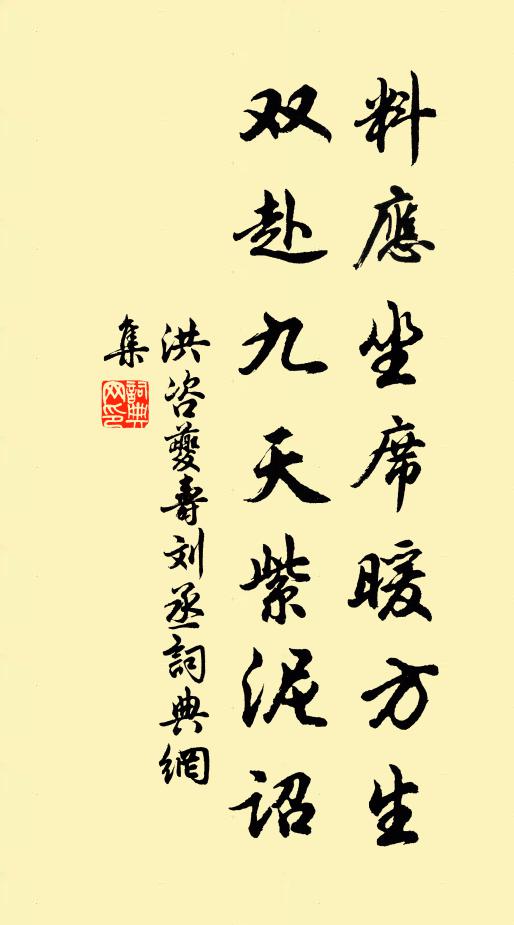 料應坐席暖方生
双赴九天紫泥诏
洪咨夔壽刘丞詞典網
集
詞典网印